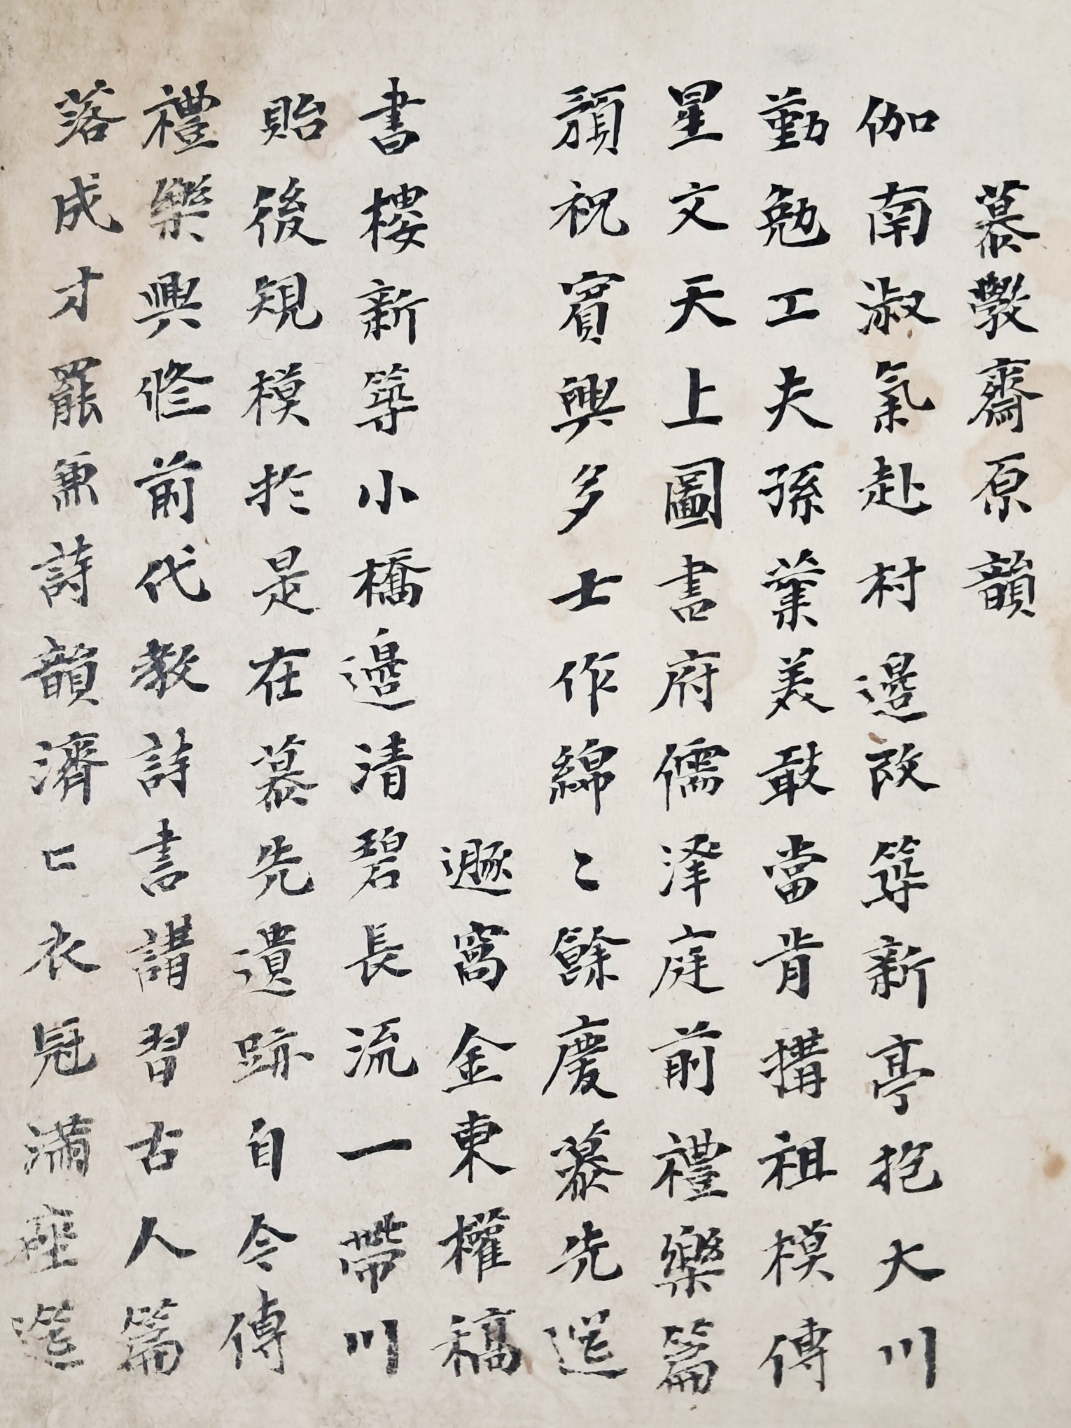 慕斅齋原韻
伽南淑氣赴村邊改筭新亭抱大川
勤勉工夫孫業美敢當肯搆祖模傳
星文天上圖書府儒澤庭前禮樂篇
須祝賓興多士作綿〻餘慶慕先選
遯窩金東權稿
書樓新筭小橋邊清碧長流一帶川
貽後規模於是在慕先遺跡自今傳
禮樂興修前代教詩書講習古人篇
落成才罷兼詩韻濟〻衣冠滿座選